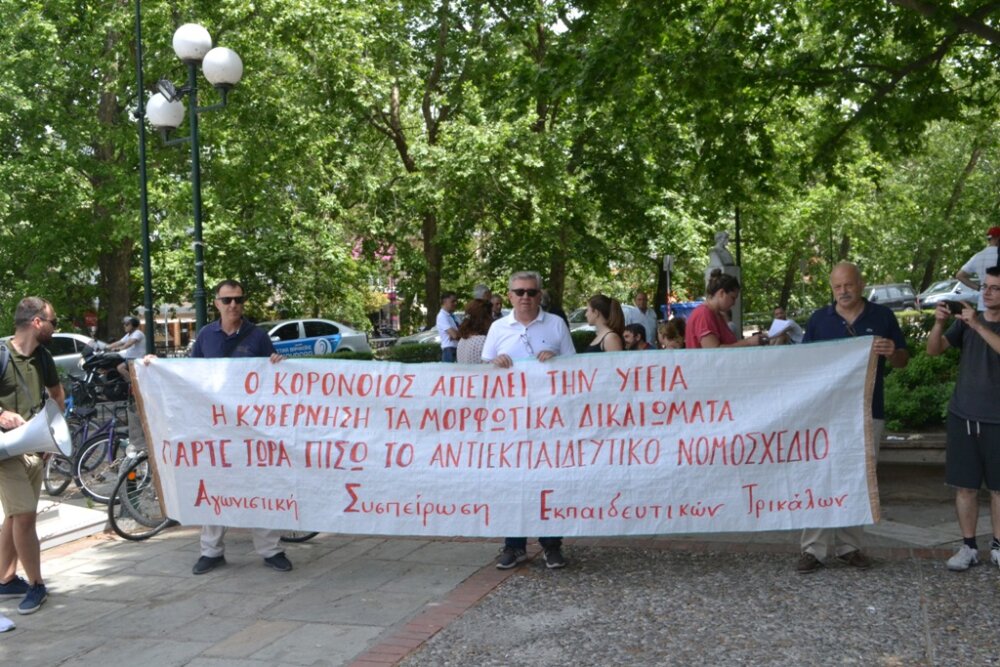 Ο ΚΟΡΟΝΟΙΟΣ ΑΠΕΙΛΕΙ ΤΗΝ ΥΓΕΙΑ
Η ΚΥΒΕΡΝΗΣΗ ΤΑ ΜΟΡΦΩΤΙΚΑ ΔΙΚΑΙΩΜΑΤΑ
ΠΑΡΤΕ ΤΩΡΑ ΠΙΣΩ ΤΟ ΑΝΤΙΕΚΠΑΙΔΕΥΤΙΚΟ ΝΟΜΟΣΧΕΔΙΟ
Αγωνιστική Συσπείρωση Εκπαιδευτικών Τρικάλων